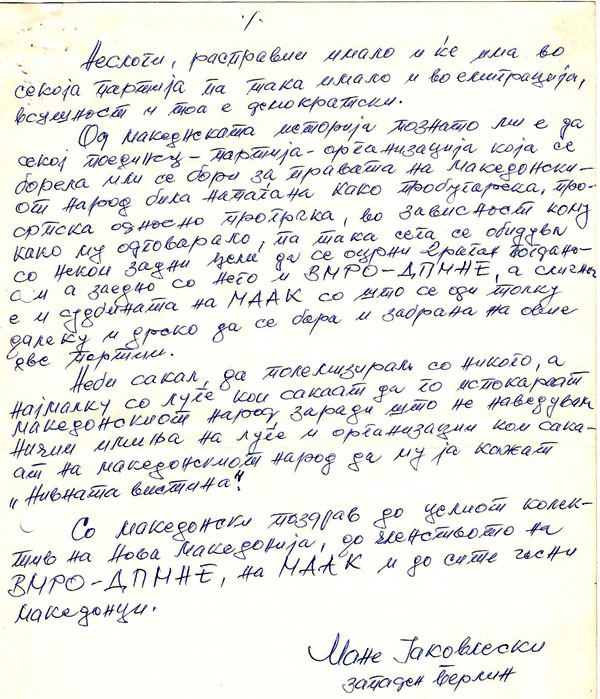 ·/.
Неслоги, расправии имало и ќе има во
секоја партија па така имало и во емиграција,
всушност и тоа е демократски.
Од македонската историја познато ми е да
секој поединец - партија - организација која се
борела или се бори за правата на Македонски-
от народ била напаѓана како пробугарска, про-
српска односно прогрчка, во зависност кому
како му одговарало, па така сега се обидува
со некои задни цели да се оцрни
а заедно со него и ВМРО-ДПМНЕ, а слична
е и судбината на МААК со што се оди толку
далеку и дрско да се бара и забрана на овие
две партии.
Неби сакал да полемизирам со никого, а
најмалку со луѓе кои сакаат да го искараат
македонскиот народ заради што не наведувам
ничии имиња на луѓе и организации кои сака-
ат на македонскиот народ да му ја кажат
„Нивната вистина“.
Со македонски поздрав до целиот колек-
тив на Нова Македонија, до членството на
ВМРО-ДПМНЕ, на МААК и до сите чесни
македонци.
Мане Јаковлески
западен Берлин